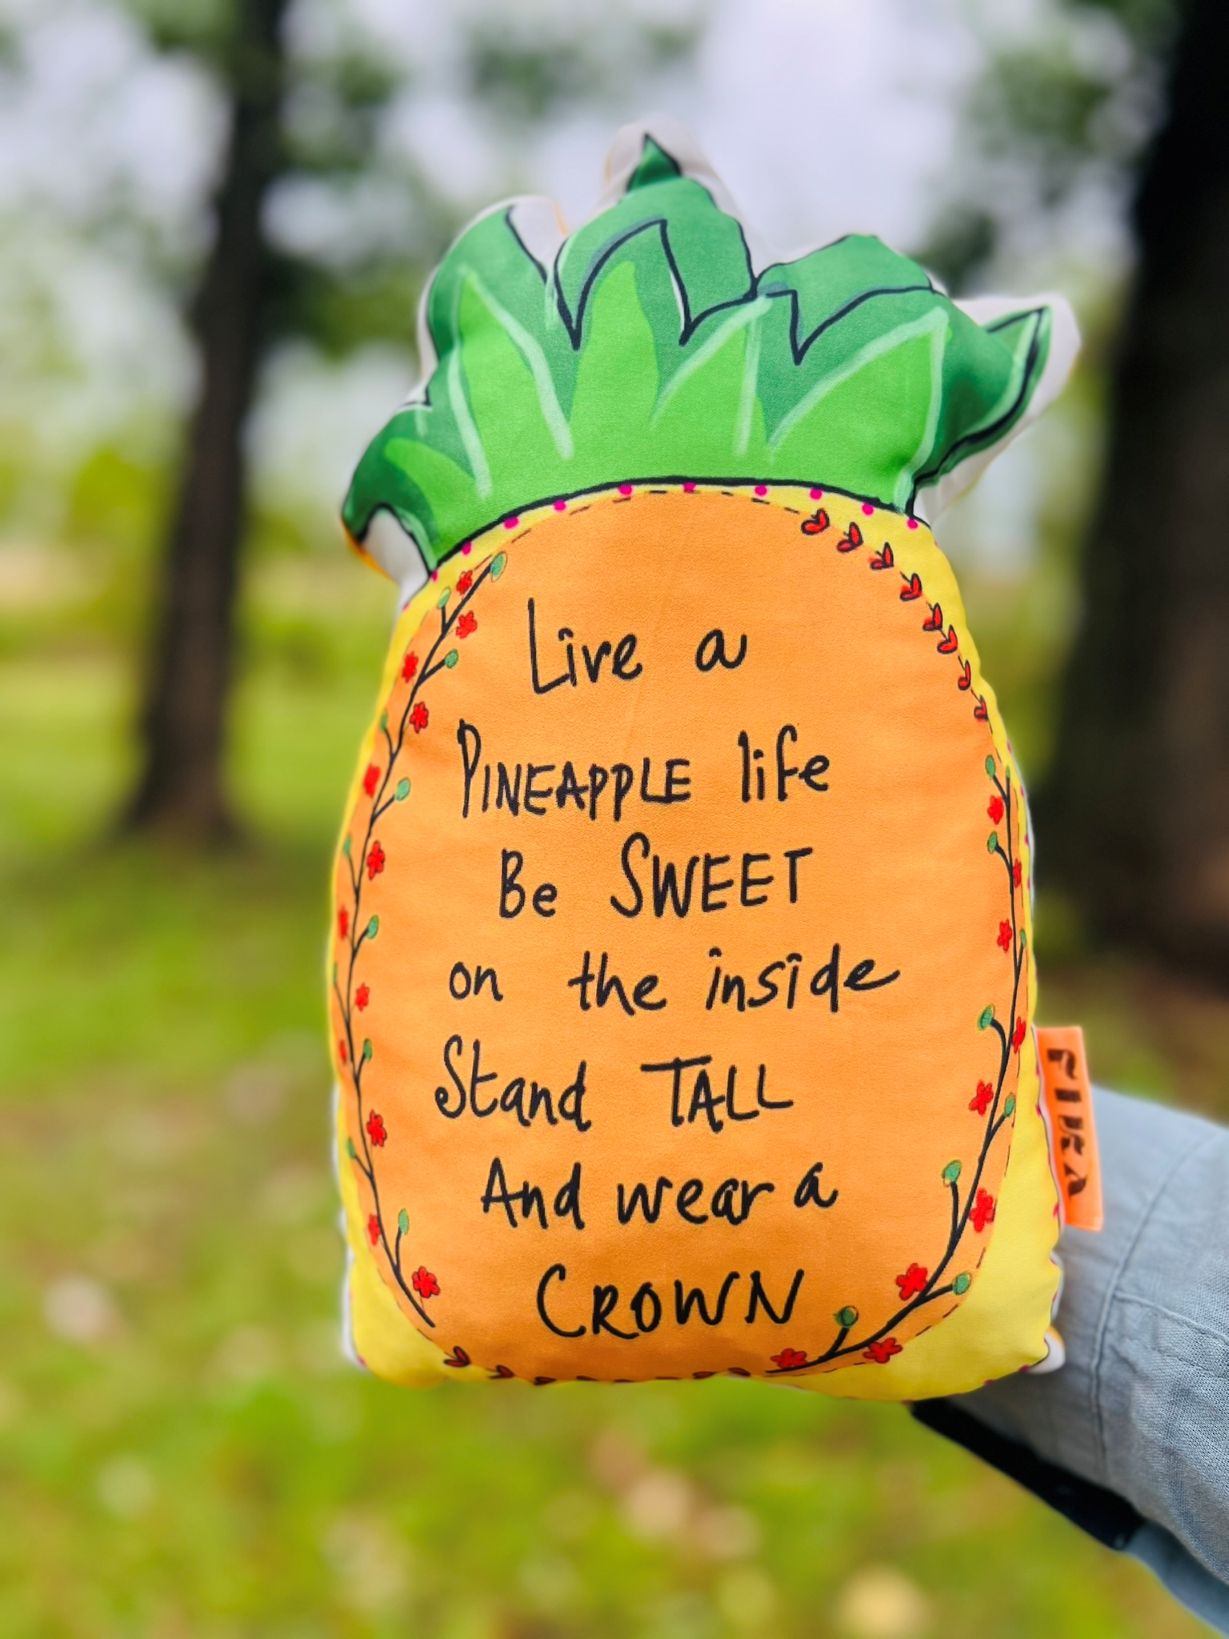 Live a
PINEAPPLE life
Be SWEET
on the inside
Stand TALL
And wear a
CROWN